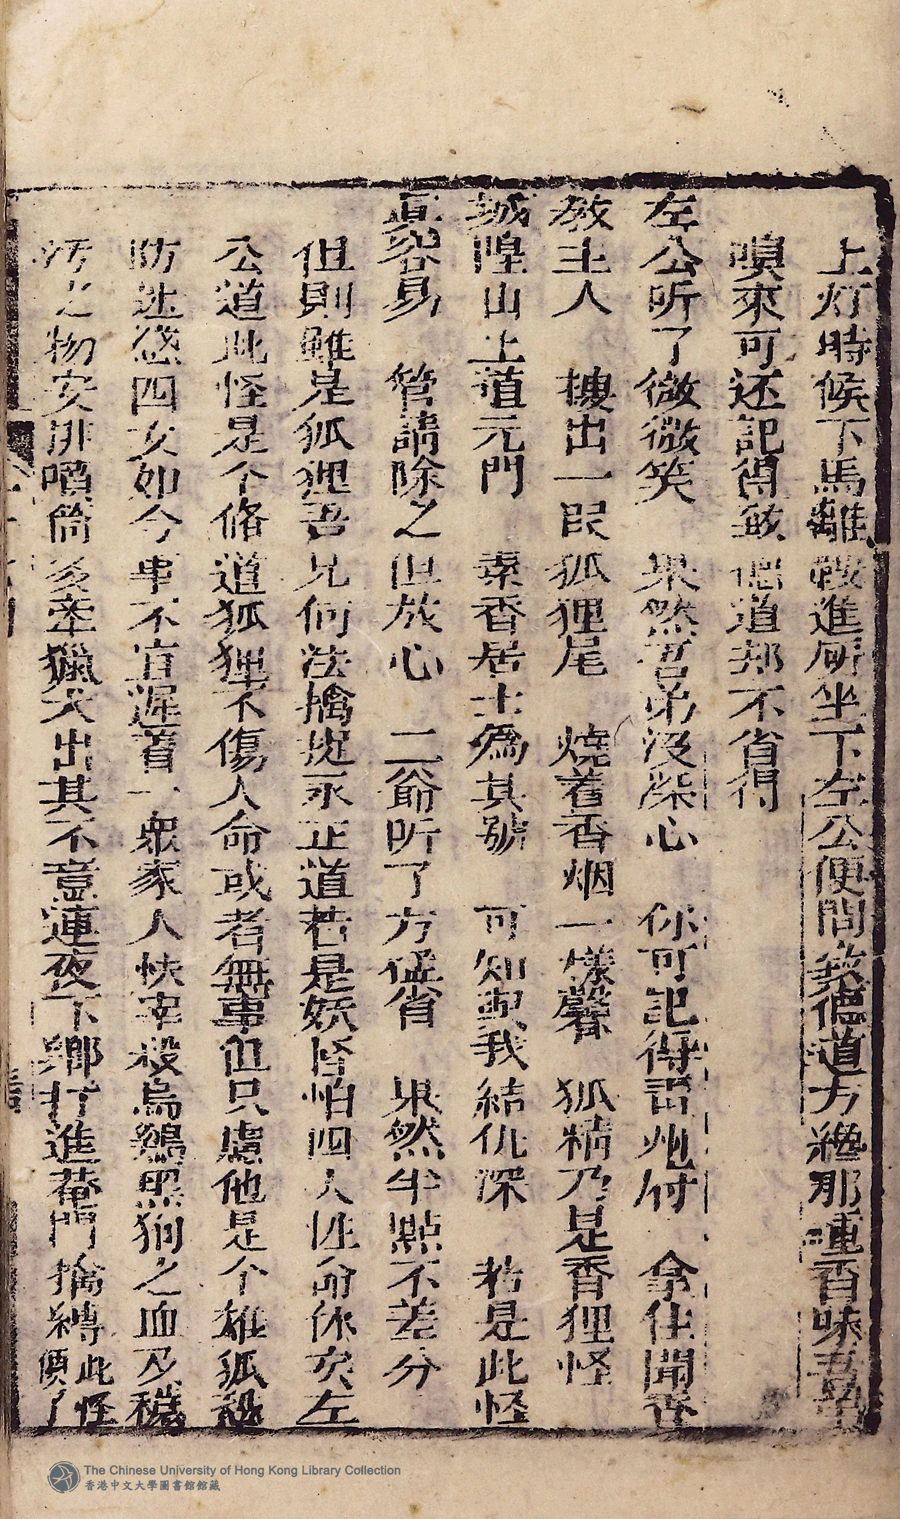 上灯時候下馬離鞍進所坐下左公便問笑德道方纔那種香味吾弟
嗅來可还記得敏德道却不省得
左公听了微微笑 果然吾弟没深心 你可記得雷州府 拿住聞香
教主人 搜出一民狐狸尾 燒着香烟一樣馨 狐精乃是香狸怪
城隍山上道元門 素香居士為其號 可知與我結仇深 若是此怪
真容易 管請除之但放心 二爺听了方猛省 果然半點不差分
但則雖是狐狸吾兄何法擒捉永正道若是妖怪怕四人性命休矣左
公道此怪是个修道狐狸不傷人命或者無事但只慮他是个雄狐
防迷惑四女如今事不宜遲着一衆家人快宰殺烏鷄黑狗之血及穢
汚之物安排噴筒多牽獵犬出其不意連夜下鄉打進菴門擒縛此怪便了
The Chinese University of Hong Kong Library Collection
香港中文大學圖書館館藏